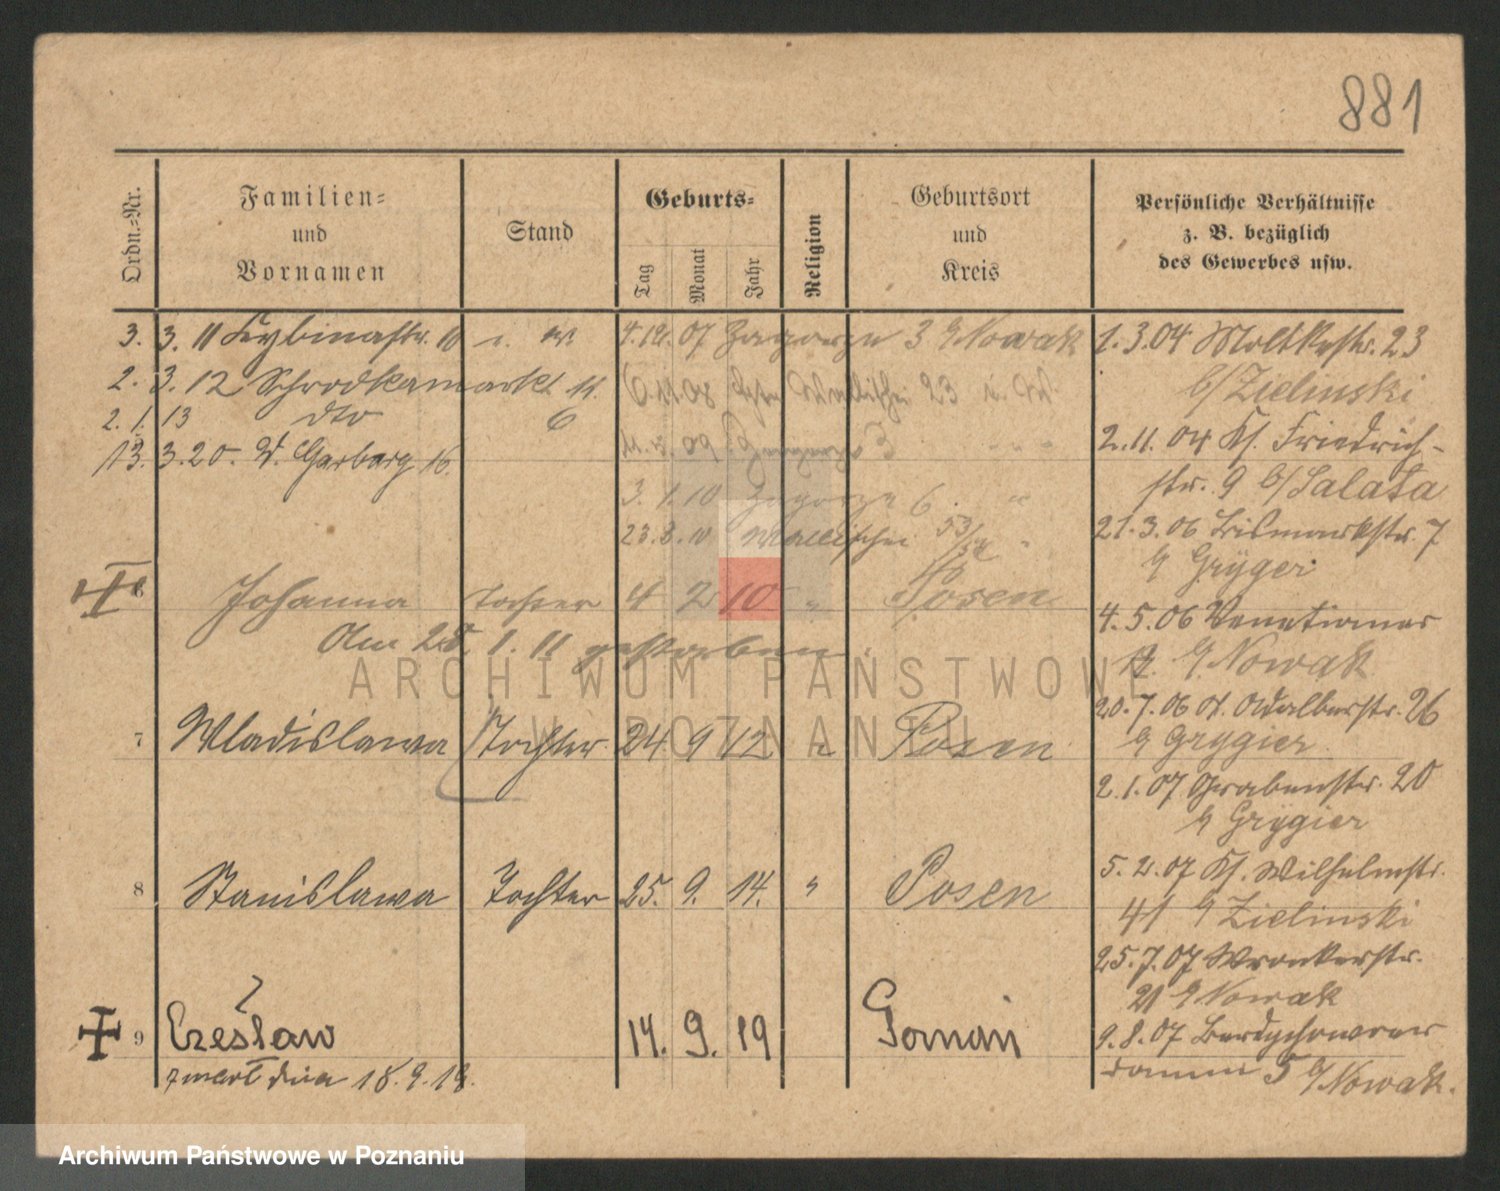 881
Ordn.-Nr.
Familien-
und
Vornamen
Stand
Geburts-
Tag
Monat
Jahr
Religion
Geburtsort
und
Kreis
Persönliche Verhältnisse
z. B. bezüglich
des Gewerbes usw.
3. 3. 11 Lybinastr. 10
2. 3. 12 Schrodkamarkt 11.
2. 1. 13 dto 6
13. 3. 20. W. Garbary 16.
4.12.07 Zagorze 3 b/Nowak
6.11.08 Wallischei 23
3. 1. 10 Zagorze 6 "
23.8.10 Wallischei 53/54
6 Johanna Tochter 4 2 10 " Posen
Am 28. 1. 11 gestorben.
7 Wladislawa Tochter 24 9 12 " Posen
8 Stanislawa Tochter 25. 9. 14. " Posen
9 Czesław 14. 9. 19 Poznań
zmarł dnia 18. 9. 19.
1.3.04 Moltkestr. 23
b/Zielinski
2.11.04 Kl. Friedrich-
str. 9 b/Salata
21.3.06 Bismarckstr. 7
b/ Grygier
4.5.06 Venetianer
b/ Nowak
20.7.06 St. Adalbertstr. 26
b/ Grygier
2.1.07 Grabenstr. 20
b/ Grygier
5.2.07 Kl. Wilhelmstr.
41 b/ Zielinski
25.7.07 Wronkerstr.
21 b/ Nowak
9.8.07 Berdychowoer
damm 5 b/Nowak.
ARCHIWUM PAŃSTWOWE
W POZNANIU
Archiwum Państwowe w Poznaniu